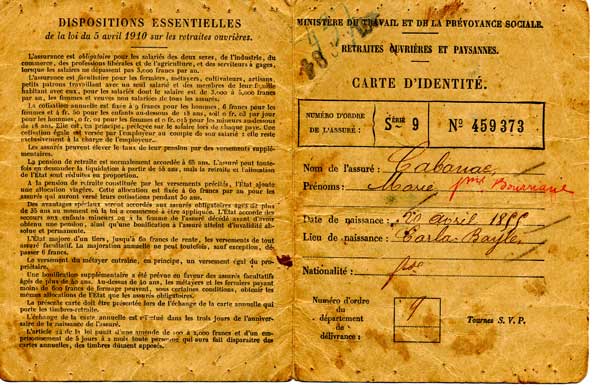 DISPOSITIONS ESSENTIELLES
de la loi du 5 avril 1910 sur les retraites ouvrières.
L'assurance est obligatoire pour les salariés des deux sexes, de l'industrie, du
commerce, des professions libérales et de l'agriculture, et des serviteurs à gages,
lorsque les salaires ne dépassent pas 3,000 francs par an.
L'assurance est facultative pour les fermiers, métayers, cultivateurs, artisans,
petits patrons travaillant avec un seul salarié et des membres de leur famille
habitant avec eux, pour les salariés dont le salaire est de 3,000 à 5,000 francs
par an, les femmes et veuves non salariées de tous les assurés.
La cotisation annuelle est fixée à 9 francs pour les hommes, 6 francs pour les
femmes et 4 fr. 50 pour les enfants au-dessous de 18 ans, soit 0 fr. 03 par jour
pour les hommes, 0 fr. 02 pour les femmes et 0 fr. 015 pour les mineurs au-dessous
de 18 ans. Elle est, en principe, prélevée sur le salaire lors de chaque paye. Une
cotisation égale est versée par l'employeur au compte de son salarié : elle reste
exclusivement à la charge de l'employeur.
Les assurés peuvent élever le taux de leur pension par des versements supplé-
mentaires.
La pension de retraite est normalement accordée à 65 ans. L'assuré peut toute-
fois en demander la liquidation à partir de 55 ans, mais la retraite et l'allocation
de l'Etat sont réduites en proportion.
A la pension de retraite constituée par les versements précités, l'Etat ajoute
une allocation viagère. Cette allocation est fixée à 60 francs par an pour les
assurés qui auront versé leurs cotisations pendant 30 ans.
Des avantages spéciaux seront accordés aux assurés obligatoires âgés de plus
de 35 ans au moment où la loi a commencé à être appliquée. L'Etat accorde des
secours aux enfants mineurs ou à la femme de l'assuré décédé avant d'avoir
obtenu une pension, ainsi qu'une bonification à l'assuré atteint d'invalidité ab-
solue et permanente.
L'Etat majore d'un tiers, jusqu'à 60 francs de rente, les versements de tout
assuré facultatif. La majoration annuelle ne peut toutefois, sauf exception, dé-
passer 6 francs.
Le versement du métayer entraîne, en principe, un versement égal du pro-
priétaire.
Une bonification supplémentaire a été prévue en faveur des assurés facultatifs
âgés de plus de 40 ans. Au-dessus de 40 ans, les métayers et les fermiers payant
moins de 600 francs de fermage peuvent, sous certaines conditions, obtenir les
mêmes allocations de l'Etat que les assurés obligatoires.
La présente carte doit être présentée lors de l'échange de la carte annuelle qui
porte les timbres-retraite.
L'échange de la carte annuelle est effectué dans les trois jours de l'anniver-
saire de la naissance de l'assuré.
L'article 23 de la loi punit d'une amende de 100 à 2,000 francs et d'un em-
prisonnement de 5 jours à 2 mois toute personne qui aura fait disparaître des
cartes annuelles, des timbres dûment apposés.
MINISTÈRE DU TRAVAIL ET DE LA PRÉVOYANCE SOCIALE.
RETRAITES OUVRIÈRES ET PAYSANNES.
CARTE D'IDENTITÉ.
NUMÉRO D'ORDRE
DE L'ASSURÉ :
SÉRIE
S- 9
N° 459373
Nom de l'assuré : Cabanac
Prénoms : Marie
Date de naissance : 20 avril
Lieu de naissance : Carla-Bayle
Nationalité : fse
Numéro d'ordre
du
département
de
délivrance :
9
Tournez S. V. P.